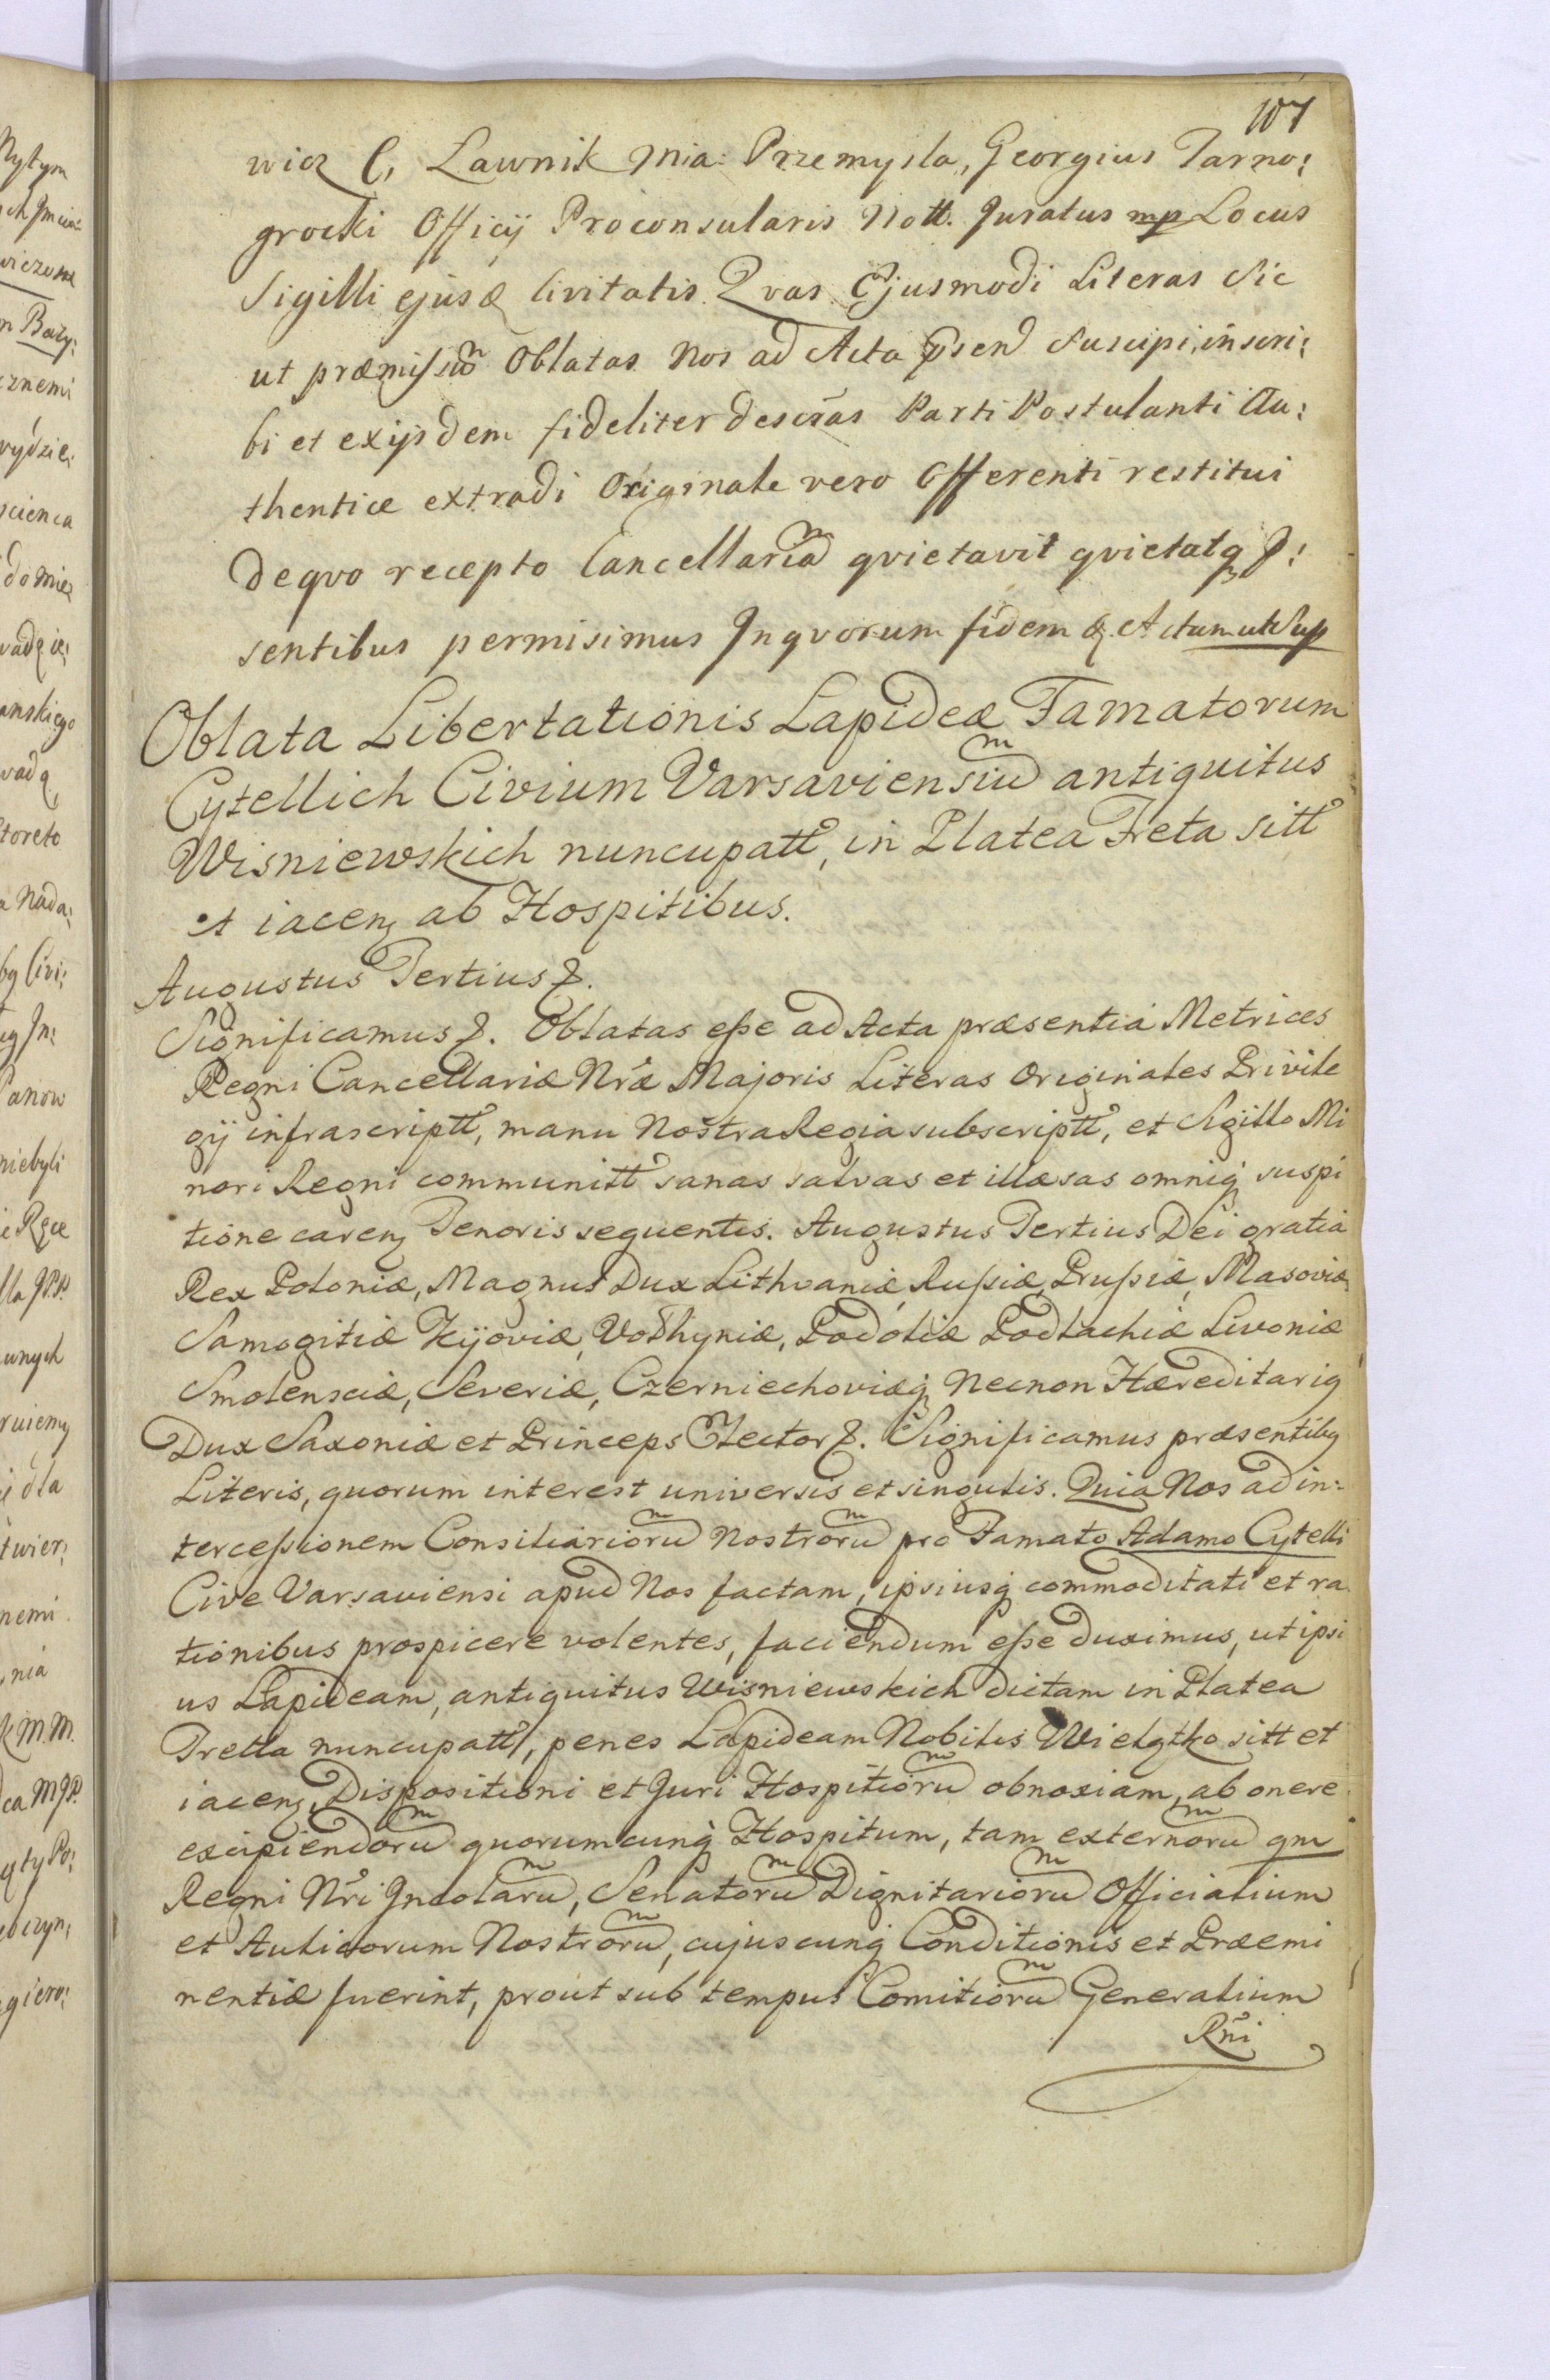 107
wicz C, Ławnik Mia: Przemysla, Georgius Tarno:
grocki Officij Proconsularis Nott. Juratus mp Locus
Sigilli ejusd Civitatis. Qvas Ejusmodi Literas Sic
ut præmissũ Oblatas Nos ad Acta pseñ Suscipi, inscri:
bi et exijsdem fideliter descrãs Parti Postulanti Au:
thentice extradi Originale vero Offerenti restitui
deqvo recepto Cancellariã qvietavit qvietatq &:
sentibus permisimus Inqvorum fidem &. Actum ut Sup
Oblata Libertationis Lapideæ Famatorum
Cytellich Civium Varsaviensiũ antiquitus
Wisniewskich nuncupatt, in Platea Freta sitt
et iacen ab Hospitibus.
Augustus Tertius &.
Significamus &. Oblatas esse ad Acta præsentia Metrices
Regni Cancellariæ Nræ Majoris Literas Originales Privile
gij infrascriptt, manu Nostra Regia subscriptt, et Sigillo Mi
nori Regni communitt sanas salvas et illæsas omniq suspi
tione caren Tenoris sequentis. Augustus Tertius Dei gratia
Rex Poloniæ, Magnus Dux Lithvaniæ, Russiæ, Prussiæ, Masoviæ,
Samogitiæ Kijoviæ, Volhyniæ, Podoliæ Podlachiæ Livoniæ
Smolensciæ, Severiæ, Czerniechoviæq Necnon Hæreditarig
Dux Saxoniæ et Princeps Elector &. Significamus præsentibg
Literis, quorum interest universis et singulis. Quia Nos ad in:
tercessionem Consiliariorũ Nostrorũ pro Famato Adamo Cytelli
Cive Varsaviensi apud Nos factam, ipsiusq commoditati et ra
tionibus prospicere volentes, faciendum esse duximus, ut ipsi
us Lapideam, antiquitus Wisniewskich dictam in Platea
Tretta nuncupatt, penes Lapideam Nobilis Wielgtko sitt et
iacen, Dispositioni et Juri Hospitiorũ obnoxiam, ab onere
excipiendorũ quorumcunq Hospitum, tam externorũ qm
Regni Nri Incolarũ, Senatorũ Dignitariorũ Officialium
et Aulicorum Nostrorũ, cujuscunq Conditionis et Præemi
nentiæ fuerint, prout sub tempus Comitiorũ Generalium
Rñi